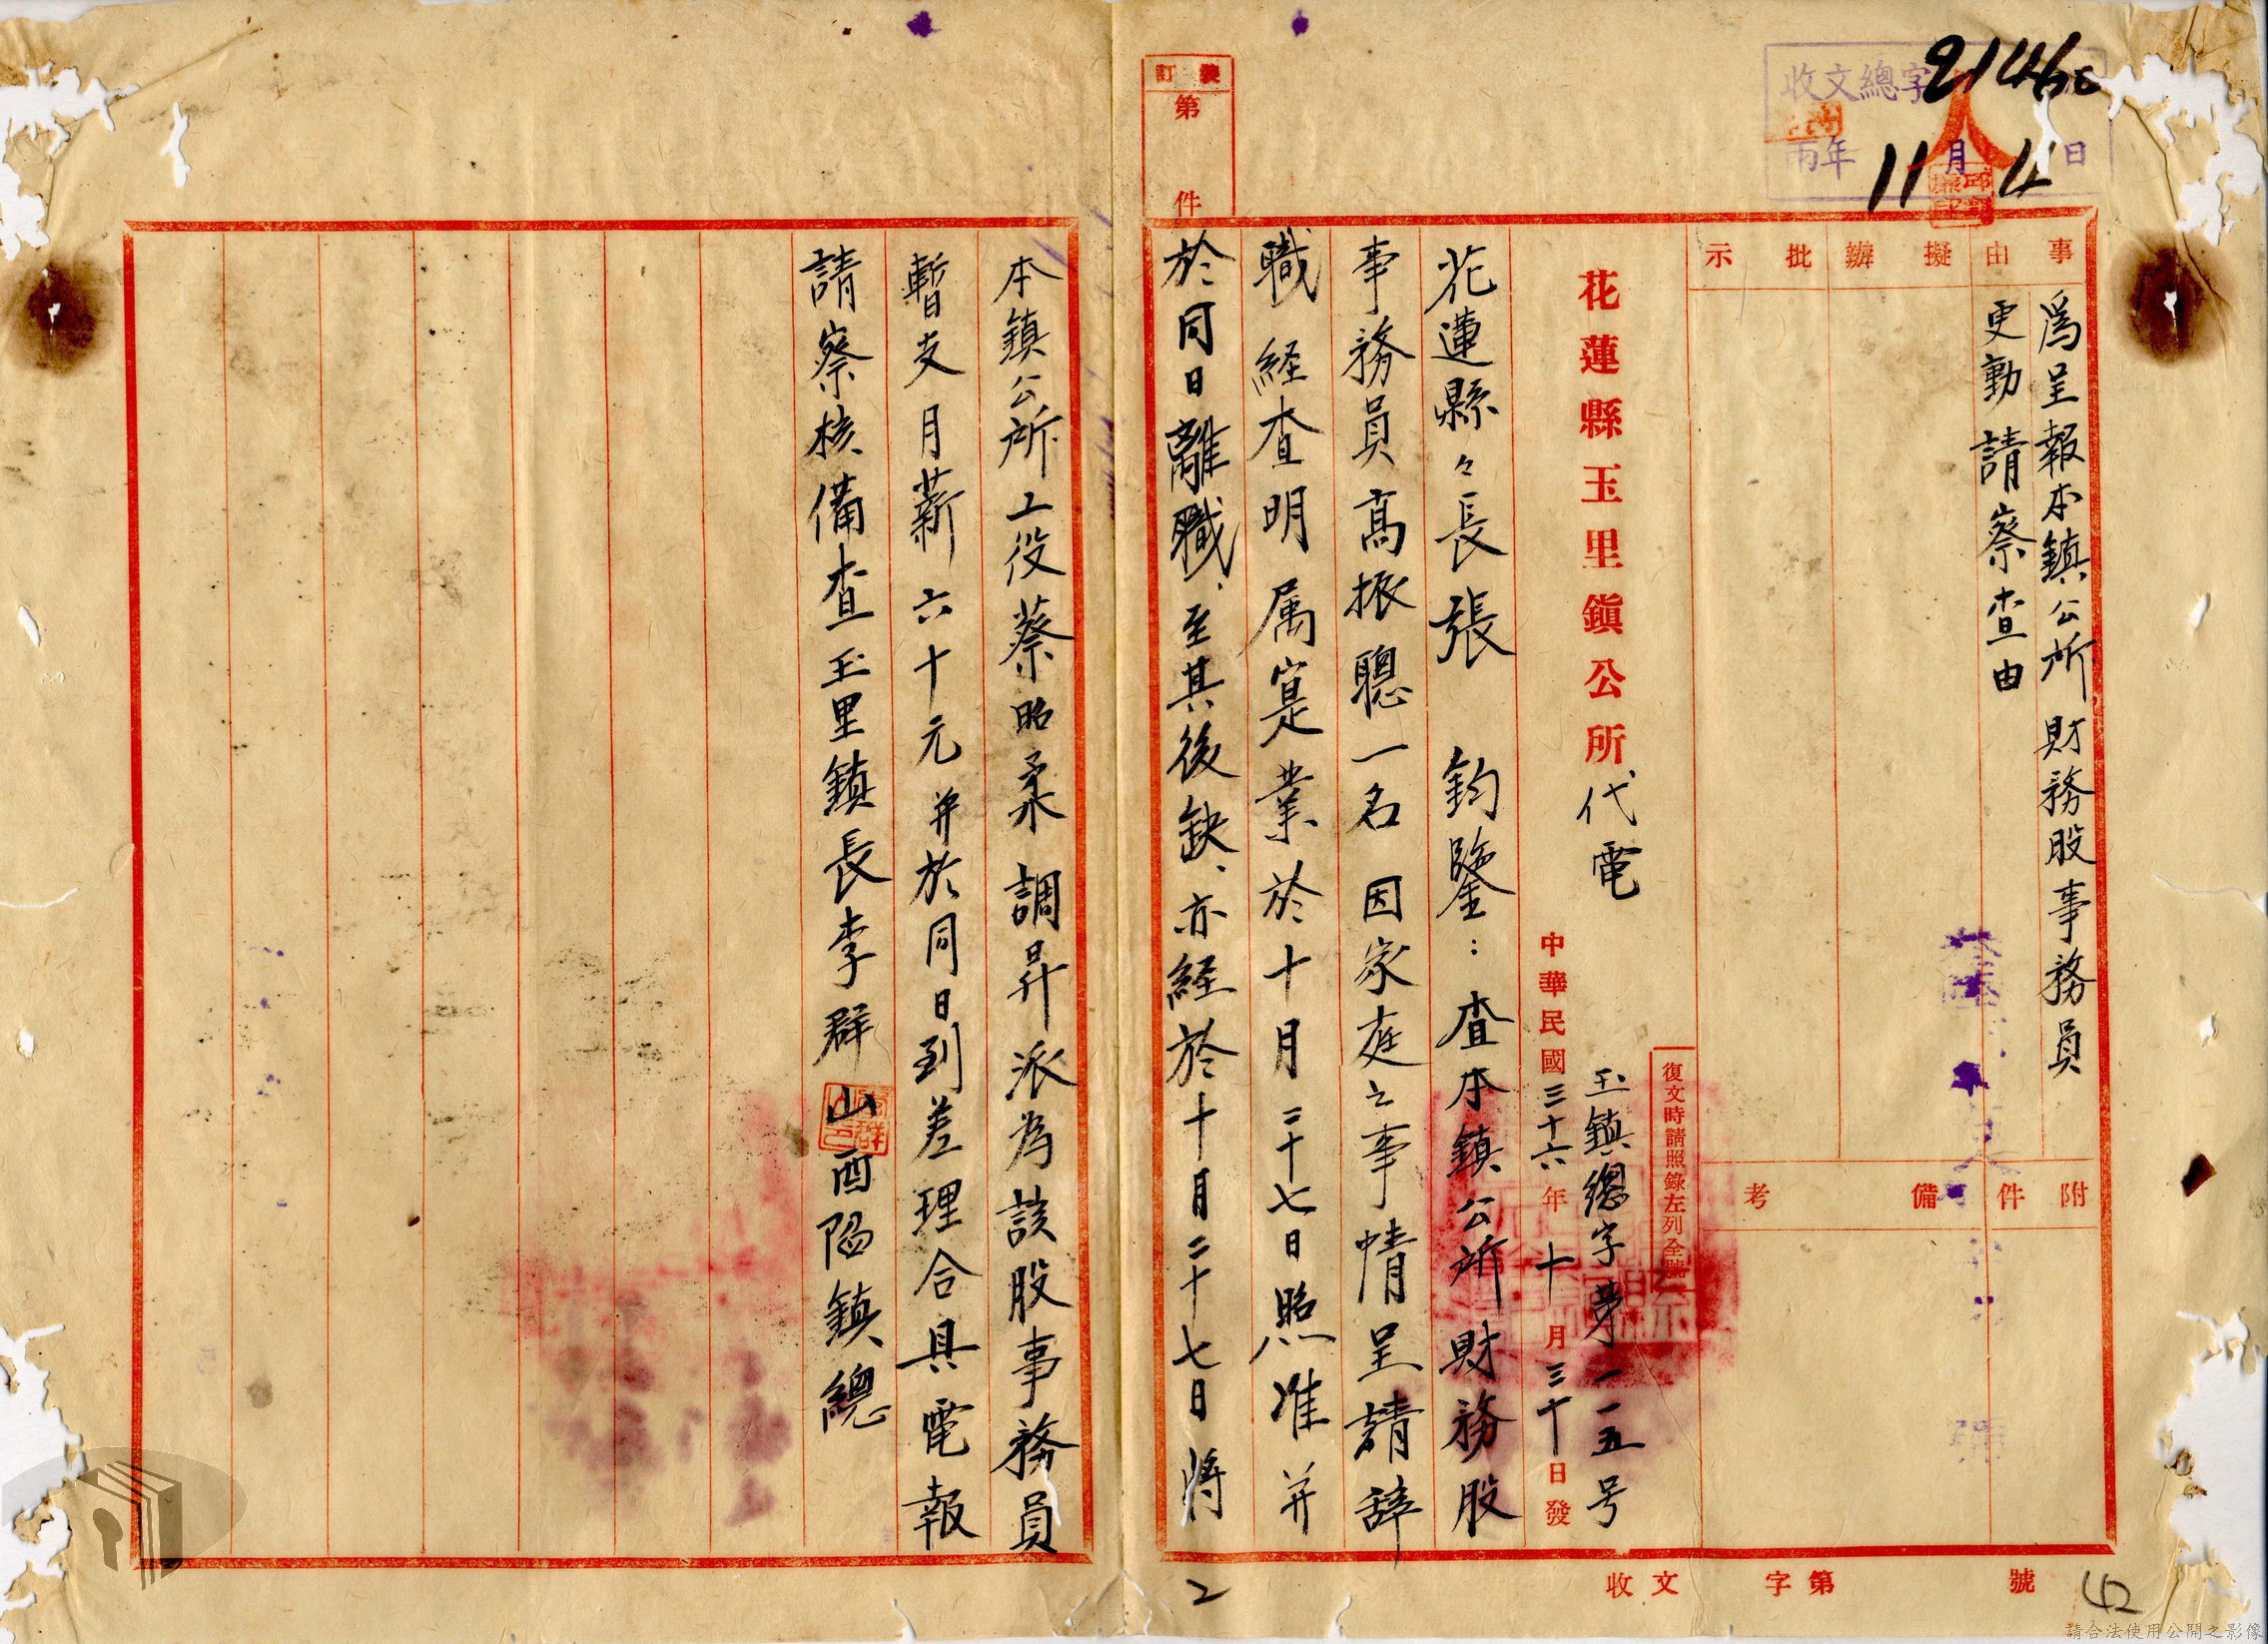 收文總字 21460
丙年 11月4日
訂裝
第 件
事由 擬辦 批示
為呈報本鎮公所財務股事務員
更動請察查由
附件 備考
花蓮縣玉里鎮公所代電
復文時請照錄左列全號
玉鎮總字第一一五号
中華民國三十六年十月三十日發
花蓮縣々長張 鈞鑒:查本鎮公所財務股
事務員高振聰一名因家庭之事情呈請辞
職経查明属寔業於十月二十七日照准并
於同日離職、至其後缺、亦経於十月二十七日將
本鎮公所工役蔡昭柔調昇派為該股事務員
暫支月薪六十元并於同日到差理合具電報
請察核備查玉里鎮長李群山酉陷鎮總
收文 字第 號
2
42
請合法使用公開之影像